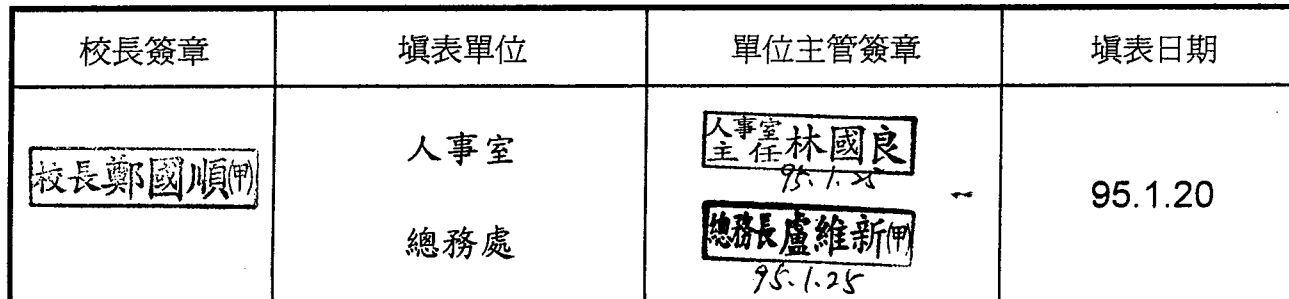 校長簽章 填表單位 單位主管簽章 填表日期
校長鄭國順(甲)
人事室
總務處
人事室主任林國良
95.1.25
總務長盧維新(甲)
95.1.25
95.1.20